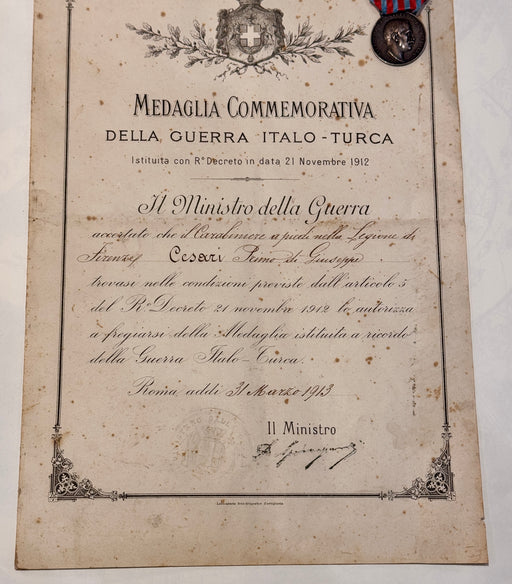 MEDAGLIA COMMEMORATIVA
DELLA GUERRA ITALO-TURCA
Istituita con R° Decreto in data 21 Novembre 1912
Il Ministro della Guerra
accertato che il Carabiniere a piedi nella Legione di
Firenze Cesari di Giuseppe
trovasi nelle condizioni previste dall'articolo 5
del R° Decreto 21 novembre 1912 lo autorizza
a fregiarsi della Medaglia istituita a ricordo
della Guerra Italo-Turca.
Roma, addì 31 Marzo 1913
Il Ministro